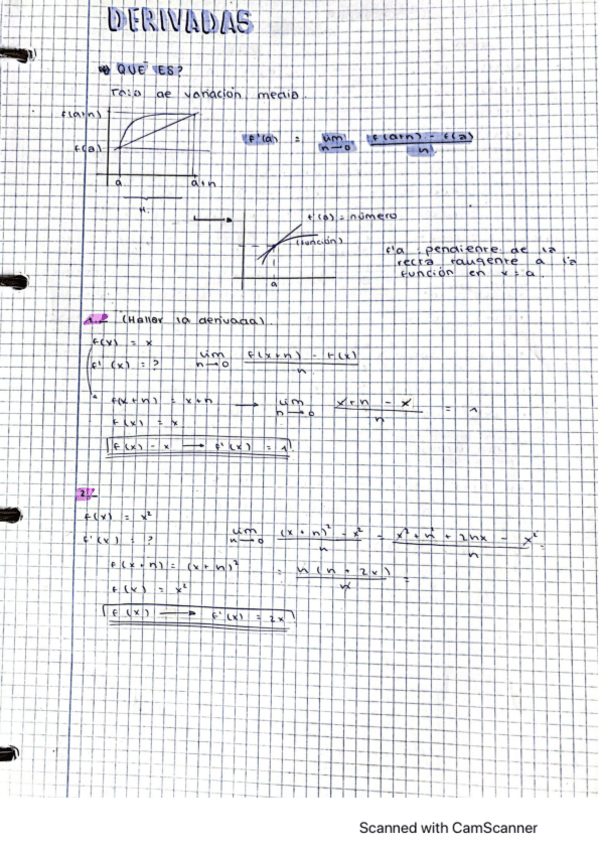 DERIVADAS
QUÉ ES?
Tasa de variación media.
f(a+h)
f(a)
a
a+h
H.
f'(a) = lim h→0 f(a+h) - f(a) / h
f'(a) = número
(función)
a
f'a pendiente de la
recta tangente a la
función en x = a.
1.- (Hallar la derivada)
f(x) = x
f'(x) = ? lim h→0 f(x+h) - f(x) / h
f(x+h) = x+h → lim h→0 x+h - x / h = 1
f(x) = x
f(x) - x → f'(x) = 1
2.-
f(x) = x²
f'(x) = ? lim h→0 (x+h)² - x² / h = x² + h² + 2hx - x² / h
f(x+h) = (x+h)² = h(h+2x) / h =
f(x) = x²
f(x) → f'(x) = 2x
Scanned with CamScanner